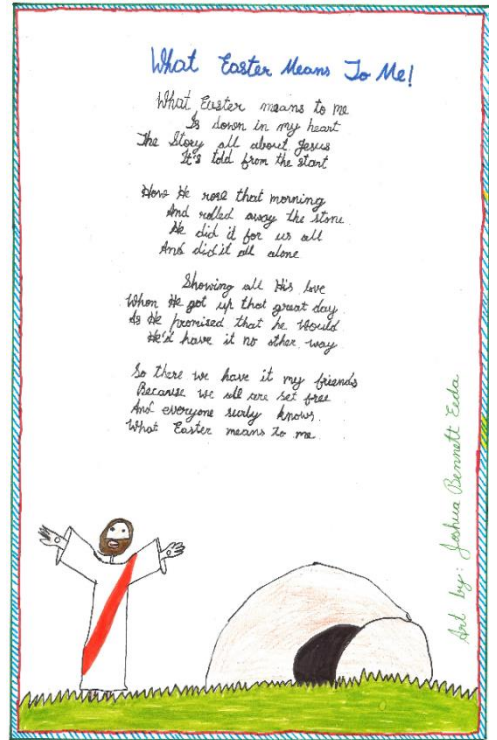 What Easter Means To Me!
What Easter means to me
Is down in my heart
The Story all about Jesus
It's told from the start
How He rose that morning
And rolled away the stone
He did it for us all
And did it all alone
Showing all His love
When He got up that great day
As He promised that he would
He'd have it no other way.
So there we have it my friends
Because we all are set free
And everyone surly knows
What Easter means to me.
Art by: Joshua Bennett Eeda